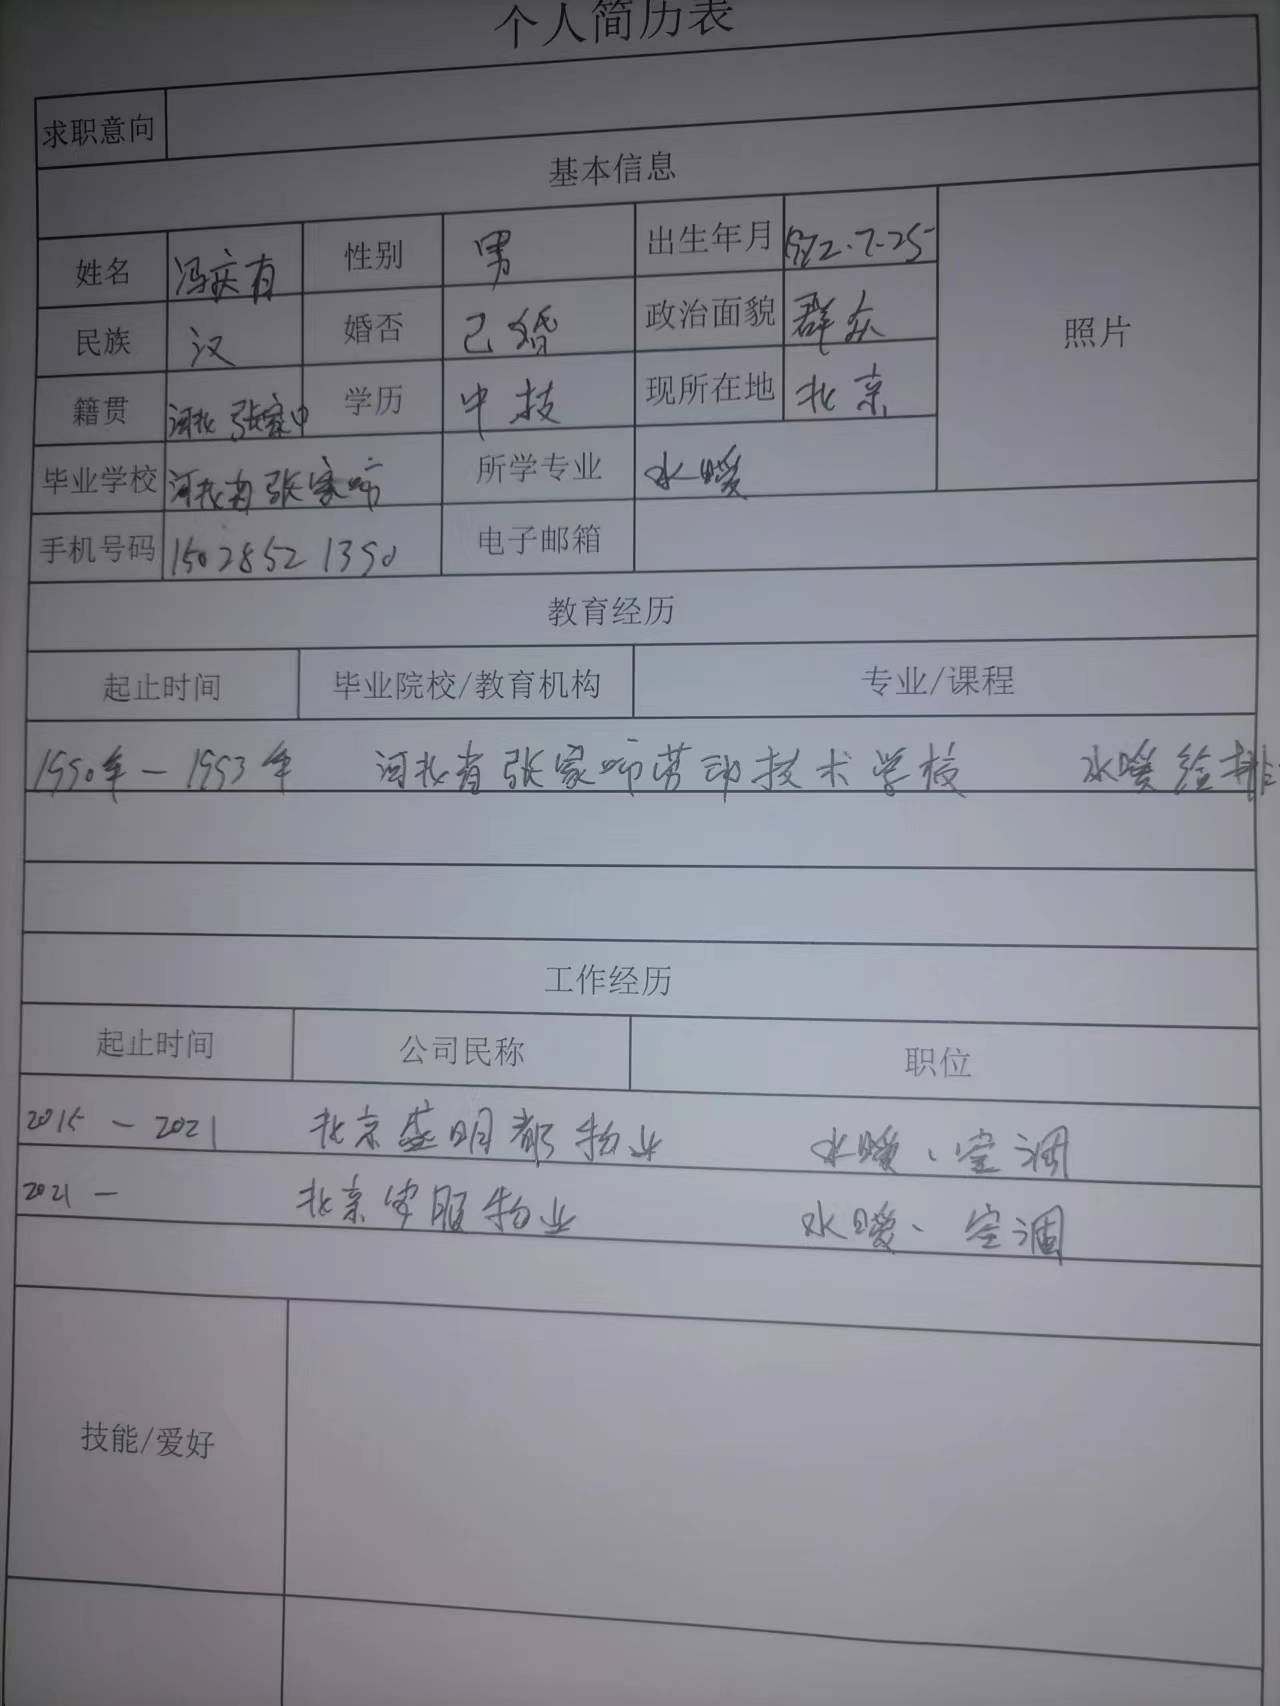 个人简历表
求职意向
基本信息
姓名 冯庆有 性别 男 出生年月 1972.7.25
民族 汉 婚否 已婚 政治面貌 群众 照片
籍贯 河北张家口 学历 中技 现所在地 北京
毕业学校 河北省张家口市 所学专业 水暖
手机号码 15028521390 电子邮箱
教育经历
起止时间 毕业院校/教育机构 专业/课程
1990年－1993年 河北省张家口市劳动技术学校 水暖给排
工作经历
起止时间 公司民称 职位
2015－2021 北京盛明都物业 水暖、空调
2021－ 北京 物业 水暖、空调
技能/爱好